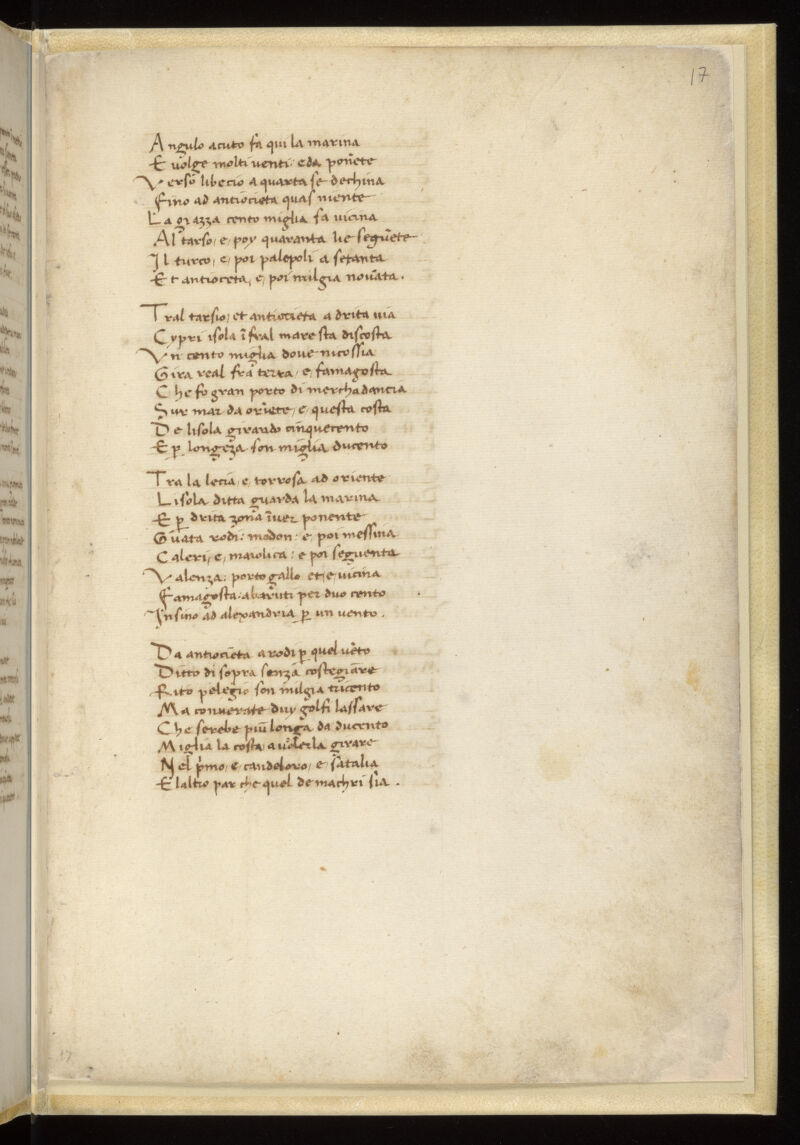 17
Angulo acuto fa qui la marina
E volge molti venti: e da ponēte
Verso libecio a quarta se dechina
Fino ad antiocieta quasi niente
La giazza cento miglia fa vicina
Al tarso, e, poy quaranta lie seguēte
Il turco, e, poi palepoli a setanta
Et antioceta, e, poi milgia novāta.
Tral tarsio, et antiocieta a drita via
Cypri isola ĩ fral mare sta discosta
Vn cento miglia dove nicossia
Gira real fra terra, e, famagosta
Che fo gran porto di merchadancia
Sur mar da oriēte, e, questa costa
De lisola girando cinquecento
E ꝑ longeza son miglia ducento
Tra la lecia, e, torrosa ad oriente
Lisola ditta guarda la marina
E ꝑ drita zona ĩver ponente
Guata rodi: modon: e, poi messina
Caleri, e, maiolica: e poi seguenta
Valenza: portogallo et, e, vicina
Famagosta: abaruti per duo cento
Insino ad alexandria ꝑ un vento.
Da antiocieta a rodi ꝑ quel vēto
Ditto di sopra senza costegiare
Rito pelegio son milgia tricento
Ma converate duy golfi lassare
Che serebe piu longa da ducento
Miglia la costa a volerla girare
Nel pr̄mo, e, candeloro, e, satalia
E laltro par che quel de machri sia.
17